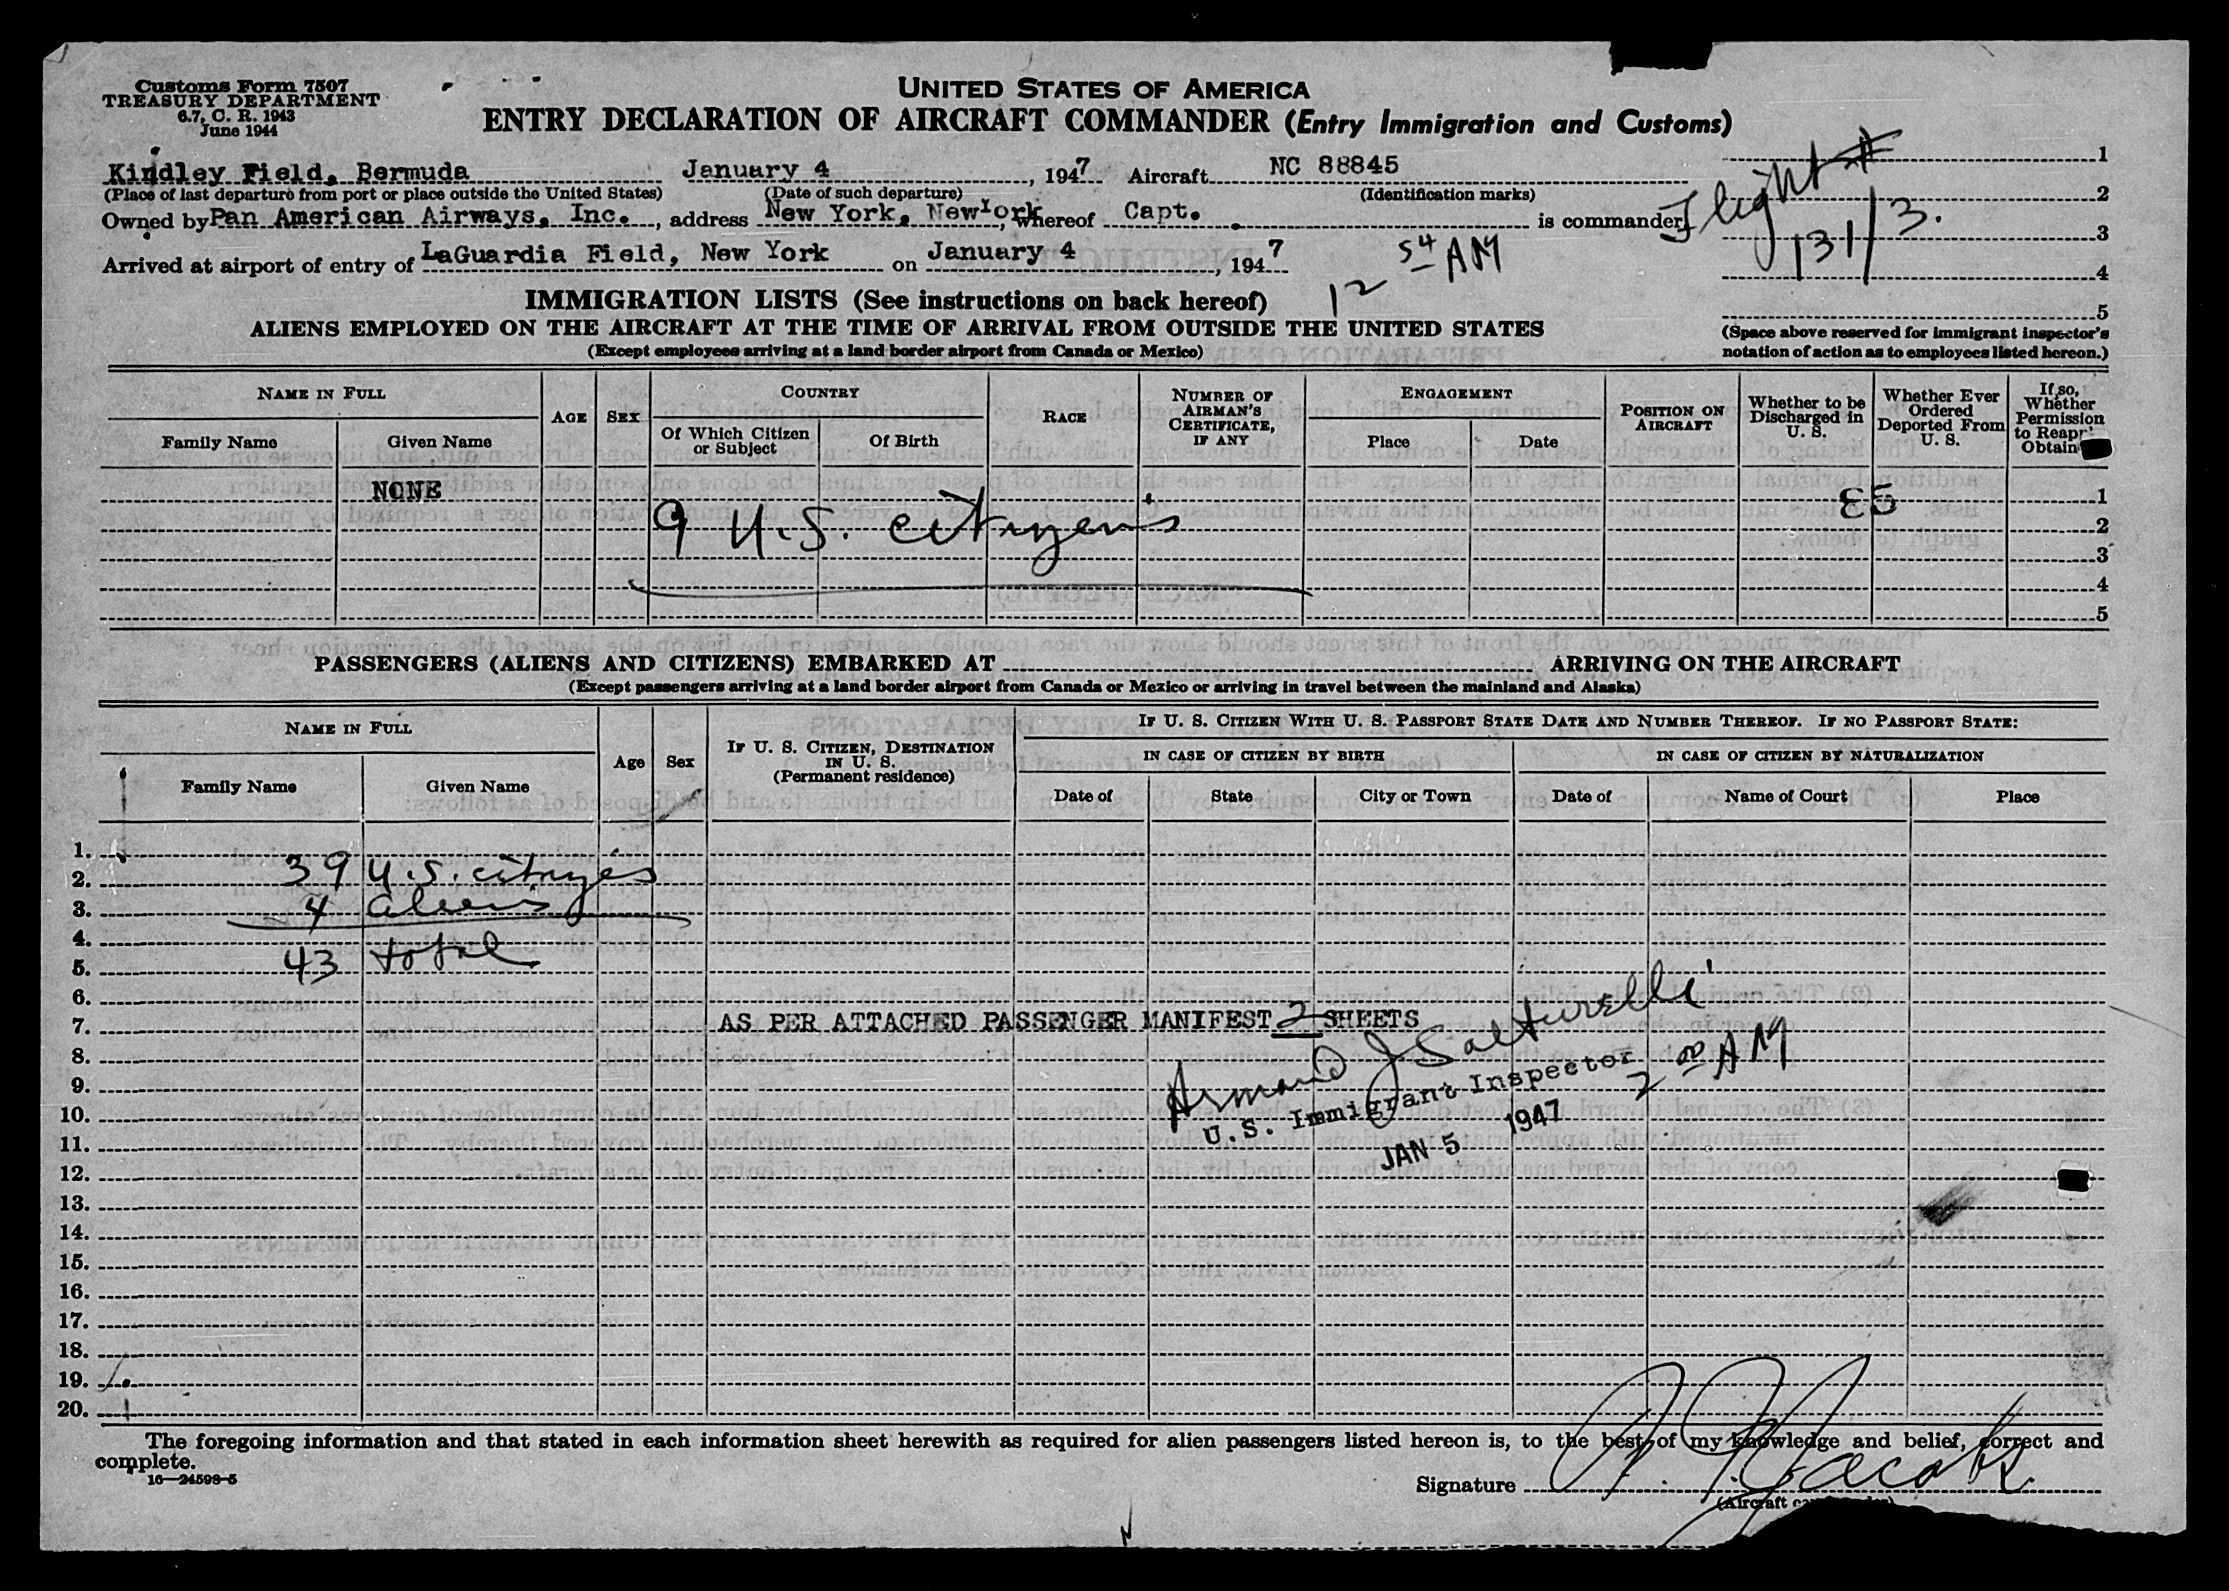 Customs Form 7507
TREASURY DEPARTMENT
6.7, C. R. 1943
June 1944
UNITED STATES OF AMERICA
ENTRY DECLARATION OF AIRCRAFT COMMANDER (Entry Immigration and Customs)
Kindley Field, Bermuda January 4, 1947 Aircraft NC 88845
(Place of last departure from port or place outside the United States) (Date of such departure) (Identification marks)
Owned by Pan American Airways, Inc., address New York, New York, whereof Capt. is commander
Flight #
131/3.
Arrived at airport of entry of LaGuardia Field, New York on January 4, 1947
12 54 AM
1
2
3
4
5
(Space above reserved for immigrant inspector's
notation of action as to employees listed hereon.)
IMMIGRATION LISTS (See instructions on back hereof)
ALIENS EMPLOYED ON THE AIRCRAFT AT THE TIME OF ARRIVAL FROM OUTSIDE THE UNITED STATES
(Except employees arriving at a land border airport from Canada or Mexico)
NAME IN FULL
Family Name Given Name
AGE SEX
COUNTRY
Of Which Citizen or Subject
Of Birth
RACE
NUMBER OF AIRMAN'S CERTIFICATE, IF ANY
ENGAGEMENT
Place Date
POSITION ON AIRCRAFT
Whether to be Discharged in U. S.
Whether Ever Ordered Deported From U. S.
If so, Whether Permission to Reap Obtain
NONE 1
9 U.S. citizens 2
3
4
5
PASSENGERS (ALIENS AND CITIZENS) EMBARKED AT ARRIVING ON THE AIRCRAFT
(Except passengers arriving at a land border airport from Canada or Mexico or arriving in travel between the mainland and Alaska)
NAME IN FULL
Family Name Given Name
Age Sex
IF U. S. CITIZEN, DESTINATION IN U. S.
(Permanent residence)
IF U. S. CITIZEN WITH U. S. PASSPORT STATE DATE AND NUMBER THEREOF. IF NO PASSPORT STATE:
IN CASE OF CITIZEN BY BIRTH IN CASE OF CITIZEN BY NATURALIZATION
Date of State City or Town Date of Name of Court Place
1.
2. 39 U.S. citizens
3. 4 aliens
4.
5. 43 total
6.
7. AS PER ATTACHED PASSENGER MANIFEST 2 SHEETS
8.
9.
10.
11.
12.
13.
14.
15.
16.
17.
18.
19.
20.
Armand J Salturelli
U.S. Immigrant Inspector
2 00 AM
JAN 5 1947
The foregoing information and that stated in each information sheet herewith as required for alien passengers listed hereon is, to the best of my knowledge and belief, correct and
complete.
16—24598-5
Signature Jacobs
(Aircraft